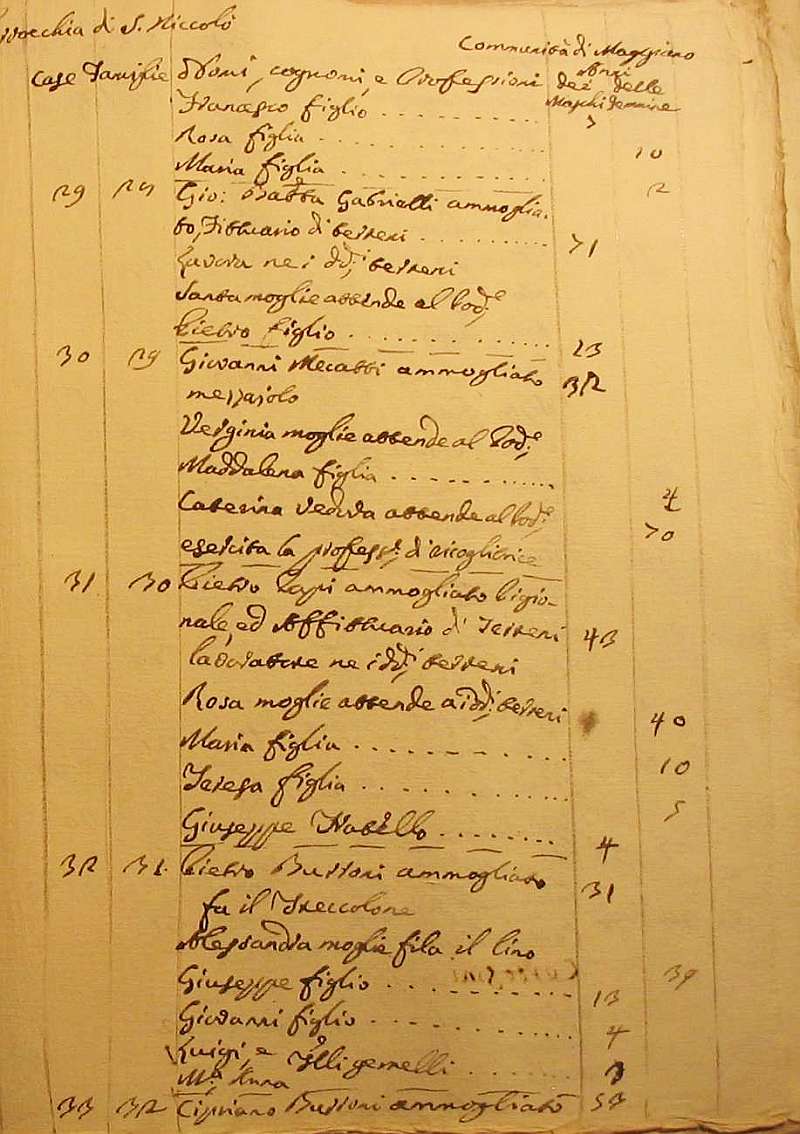 Parrocchia di S. Niccolò
Communità di Maggiano
Case Famiglie Nomi, cognomi, e Professioni Anni
dei delle
Maschi Femmine
Francesco figlio 7
Rosa figlia 10
Maria figlia 2
29 29 Gio: Batta Gabrielli ammoglia-
to, Fittuario di terreni 71
Lavora ne i dd.i terreni
Santa moglie attende al Pod.e
Pietro figlio 23
30 29 Giovanni Mecatti ammogliato 32
mezzaiolo
Verginia moglie attende al Pod.e
Maddalena figlia 4
Caterina vedova attende al Pod.e 70
esercita la profess.e di ricoglitrice
31 30 Pietro Lapi ammogliato Pigio-
nale, ed Affittuario di Terreni 43
lavoratore ne i dd.i terreni
Rosa moglie attende a i dd.i terreni 40
Maria figlia 10
Teresa figlia 5
Giuseppe 4
32 31. Pietro Burroni ammogliato 31
fa il Treccolone
Alessandra moglie fila il lino 39
Giuseppe figlio 13
Giovanni figlio 4
Luigi, e
M.a Anna gemelli
33 32 Cipriano Burroni ammogliato 53